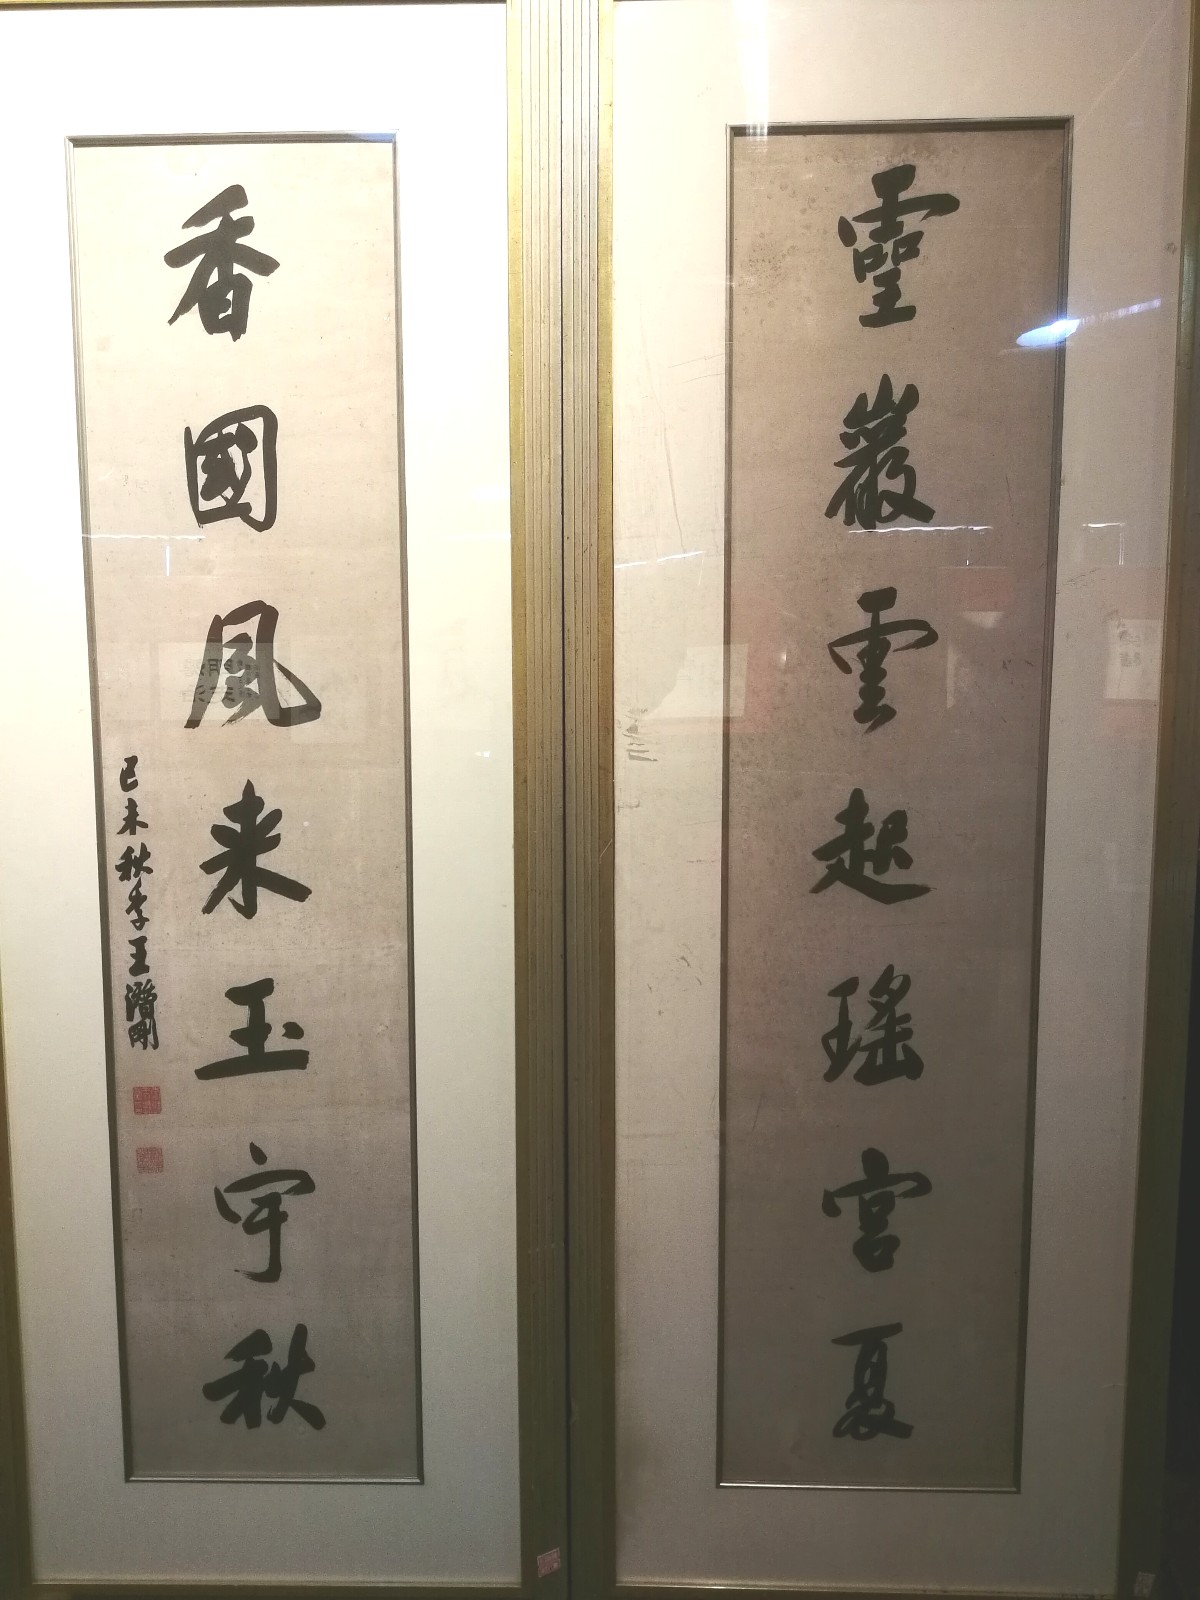 靈巖雲起瑤宮夏
香國風来玉宇秋
己未秋季王潛剛